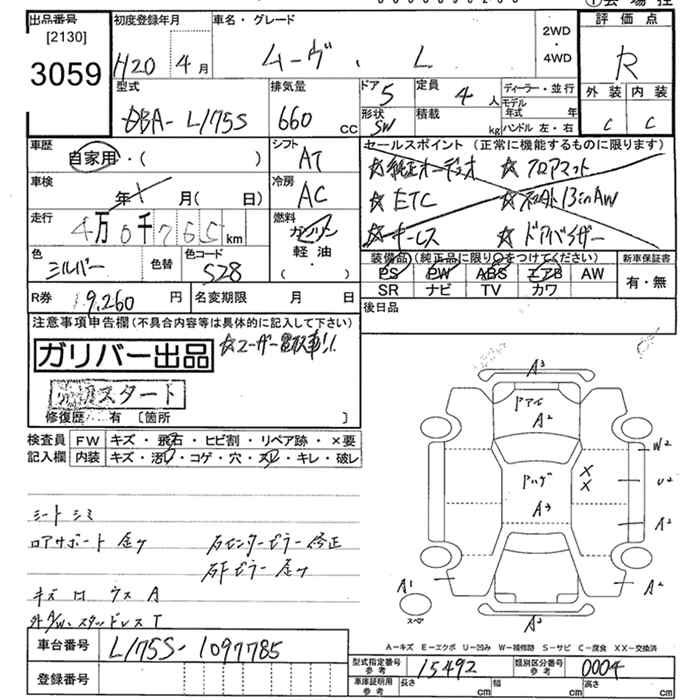 出品番号
[2130]
3059
初度登録年月
H20 4月
車名・グレード
ムーヴ . L
2WD
・
4WD
評価点
R
外装 内装
C C
型式
DBA-L175S
排気量
660 cc
ドア 5
形状 SW
定員 4人
積載 kg
ディーラー・並行
モデル年式 年
ハンドル 左・右
車歴
自家用・( )
シフト
AT
車検
年 月( 日)
冷房
AC
走行
4万0千765km
燃料
ガソリン
軽油
・( )
色
シルバー
色替
色コード
S28
R券 9,260円
名変期限 月 日
セールスポイント (正常に機能するものに限ります)
☆純正オーディオ ☆フロアマット
☆ETC ☆社外13inAW
☆キーレス ☆ドアバイザー
装備品(純正品に限り○をつけてください)
PS PW ABS エアB AW
SR ナビ TV カワ
新車保証書
有・無
後日品
注意事項申告欄(不具合内容等は具体的に記入して下さい)
ガリバー出品
☆ユーザー買取車!!
スタート
修復歴 有 [箇所 ]
検査員記入欄
FW キズ・飛石・ヒビ割・リペア跡・×要
内装 キズ・汚レ・コゲ・穴・スレ・キレ・破レ
シートシミ
ロアサポート 金サ 右センターピラー修正
右Fピラー 金サ
キズ ロ ウス A
外A/W、スタッドレス T
車台番号 L175S-1097785
登録番号
A3
ドアイル
A2
ドハゲ
A3
X
X
W2
U2
A2
A2
A1
スペア
A2
A-キズ E-エクボ U-凹み W-補修跡 S-サビ C-腐食 XX-交換済
型式指定番号
参考
15492
類別区分番号
参考
0004
車庫証明用
参考
長さ cm
幅 cm
高さ cm